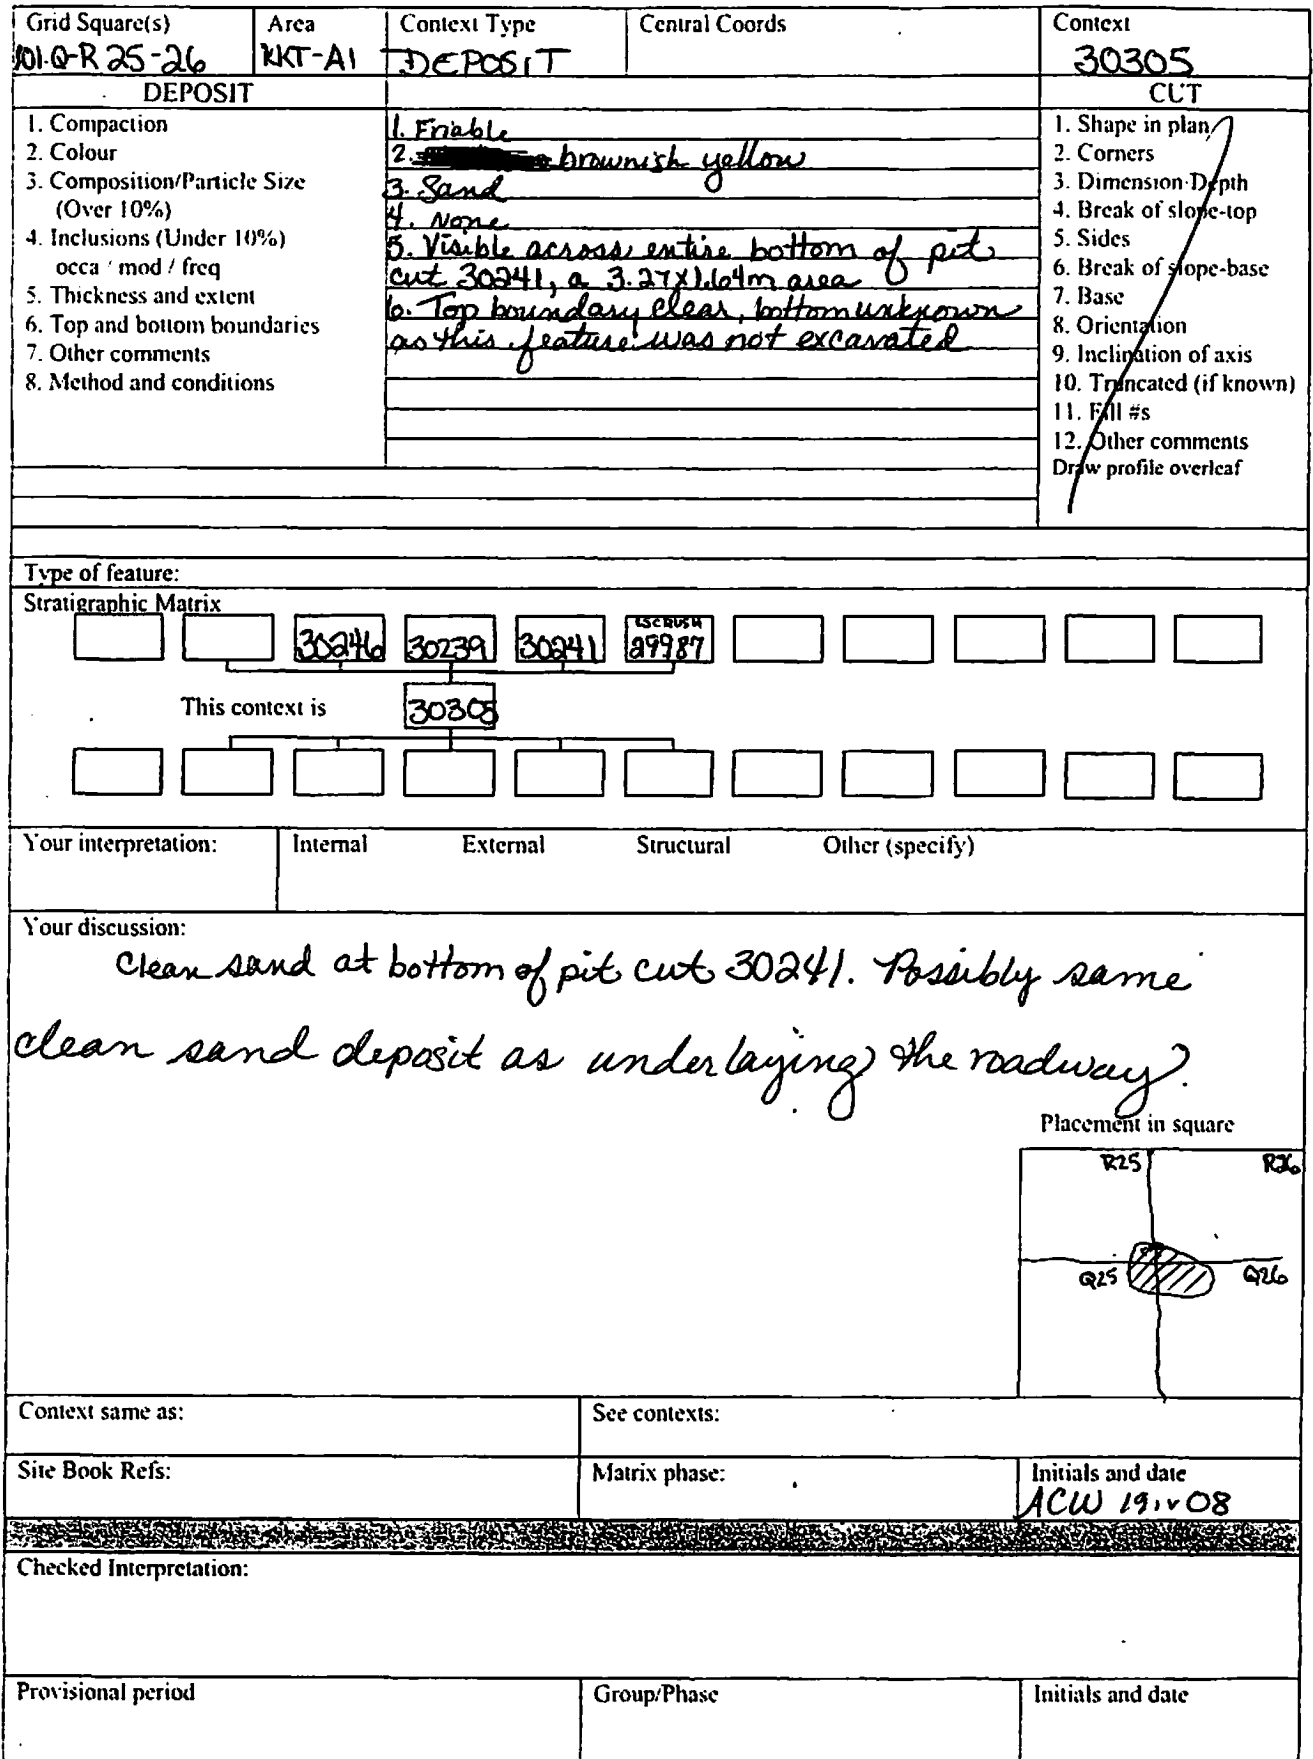 Grid Square(s) Area Context Type Central Coords Context
101.Q-R 25-26 KKT-A1 DEPOSIT 30305
DEPOSIT CUT
1. Compaction
2. Colour
3. Composition/Particle Size
(Over 10%)
4. Inclusions (Under 10%)
occa / mod / freq
5. Thickness and extent
6. Top and bottom boundaries
7. Other comments
8. Method and conditions
1. Friable
2. brownish yellow
3. Sand
4. None
5. Visible across entire bottom of pit
cut 30241, a 3.27x1.64m area
6. Top boundary clear, bottom unknown
as this feature was not excavated
1. Shape in plan
2. Corners
3. Dimension-Depth
4. Break of slope-top
5. Sides
6. Break of slope-base
7. Base
8. Orientation
9. Inclination of axis
10. Truncated (if known)
11. Fill #s
12. Other comments
Draw profile overleaf
Type of feature:
Stratigraphic Matrix
30246 30239 30241 29987
This context is 30305
Your interpretation: Internal External Structural Other (specify)
Your discussion:
Clean sand at bottom of pit cut 30241. Possibly same
clean sand deposit as underlaying the roadway.
Placement in square
R25 R26
Q25 Q26
Context same as: See contexts:
Site Book Refs: Matrix phase: Initials and date
ACW 19.iv 08
Checked Interpretation:
Provisional period Group/Phase Initials and date